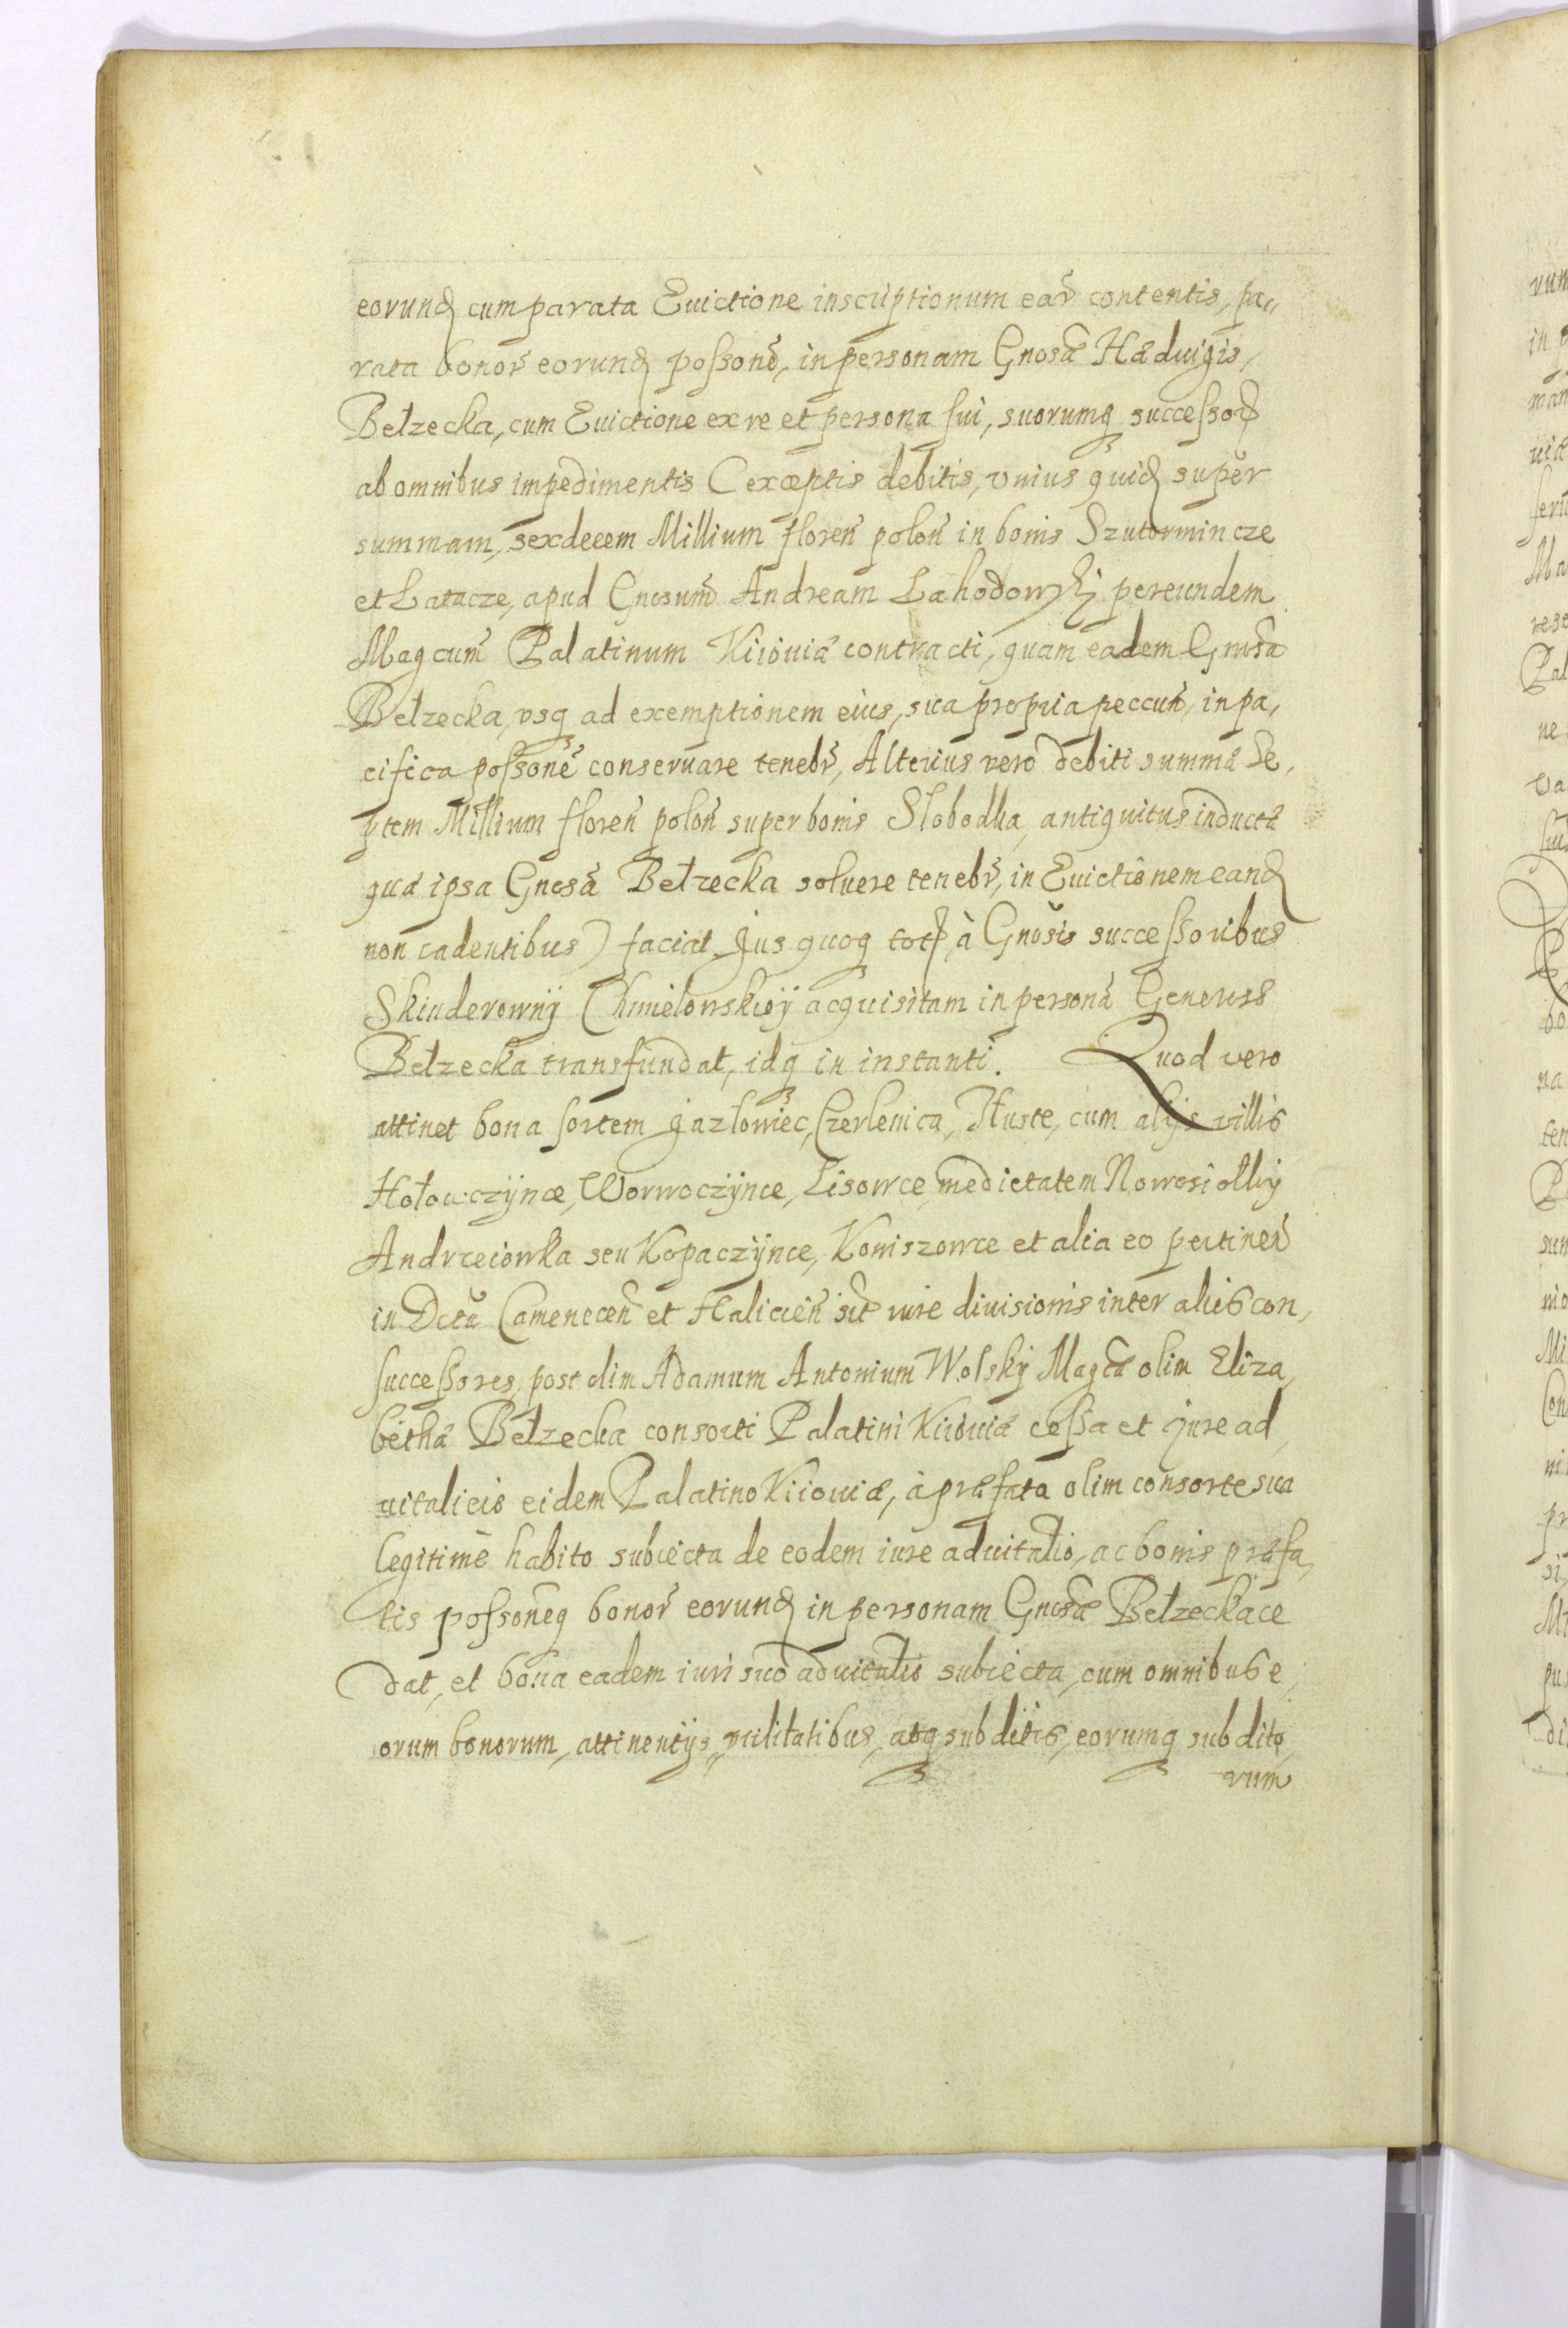 eorund cum parata Euictione inscriptionum ear̃ contentis, pa,,
rata bonor̃ eorund possone, in personam Gnosæ Hæduigis,
Belzecka, cum Euictione ex re et persona sui, suorumq successor
ab omnibus impedimentis (exceptis debitis, vnius quid super
summam, sexdecem Millium floreñ poloñ in bonis Szutormincze
et Latacze, apud Gnosum Andream Lahodowski per eundem
Magcum Palatinum Kiiouiæ contracti, quam eadem Gnosa
Belzecka, vsq ad exemptionem eius, sua propria peccuñ, in pa,
cifica possone conseruare tenebr̃, Alterius vero debiti summæ Se,
ptem Millium floreñ poloñ super bonis Slobodka, antiquitus inductæ
quæ ipsa Gnosa Belzecka soluere tenebr̃, in Euictionem eand
non cadentibus) faciat. Jus quoq tot à Gnosis successoribus
Skinderowny Chmielowskiey acquisitam in persona Generosæ
Belzecka transfundat, idq in instanti. Quod vero
attinet bona sortem Jazlowiec, Czerlenica, Huste, cum alijs villis
Hołowczynce, Worwoczynce, Lisowce, medietatem Nowosiołky
Andrzeiowka seu Kopaczynce, Koniszowce et alia eo pertineñ
in Dctu Cameneceñ et Halicieñ sit iure diuisionis inter alios con,
successores, post olim Adamum Antonium Wolsky Magcæ olim Eliza,
bethæ Belzecka consorti Palatini Kiiouiæ cessa et jure ad,
uitalicio eidem Palatino Kiiouiæ, à præfata olim consorte sua
legitimè habito subiecta de eodem iure aduitalio, ac bonis præfa,
tis possoneq bonor̃ eorund in personam Gnosæ Belzecka ce
dat, et bona eadem iuri suo aduitalio subiecta, cum omnibus e,
orum bonorum, attinentijs, vtilitatibus, atq subditis, eorumq subdito
rum